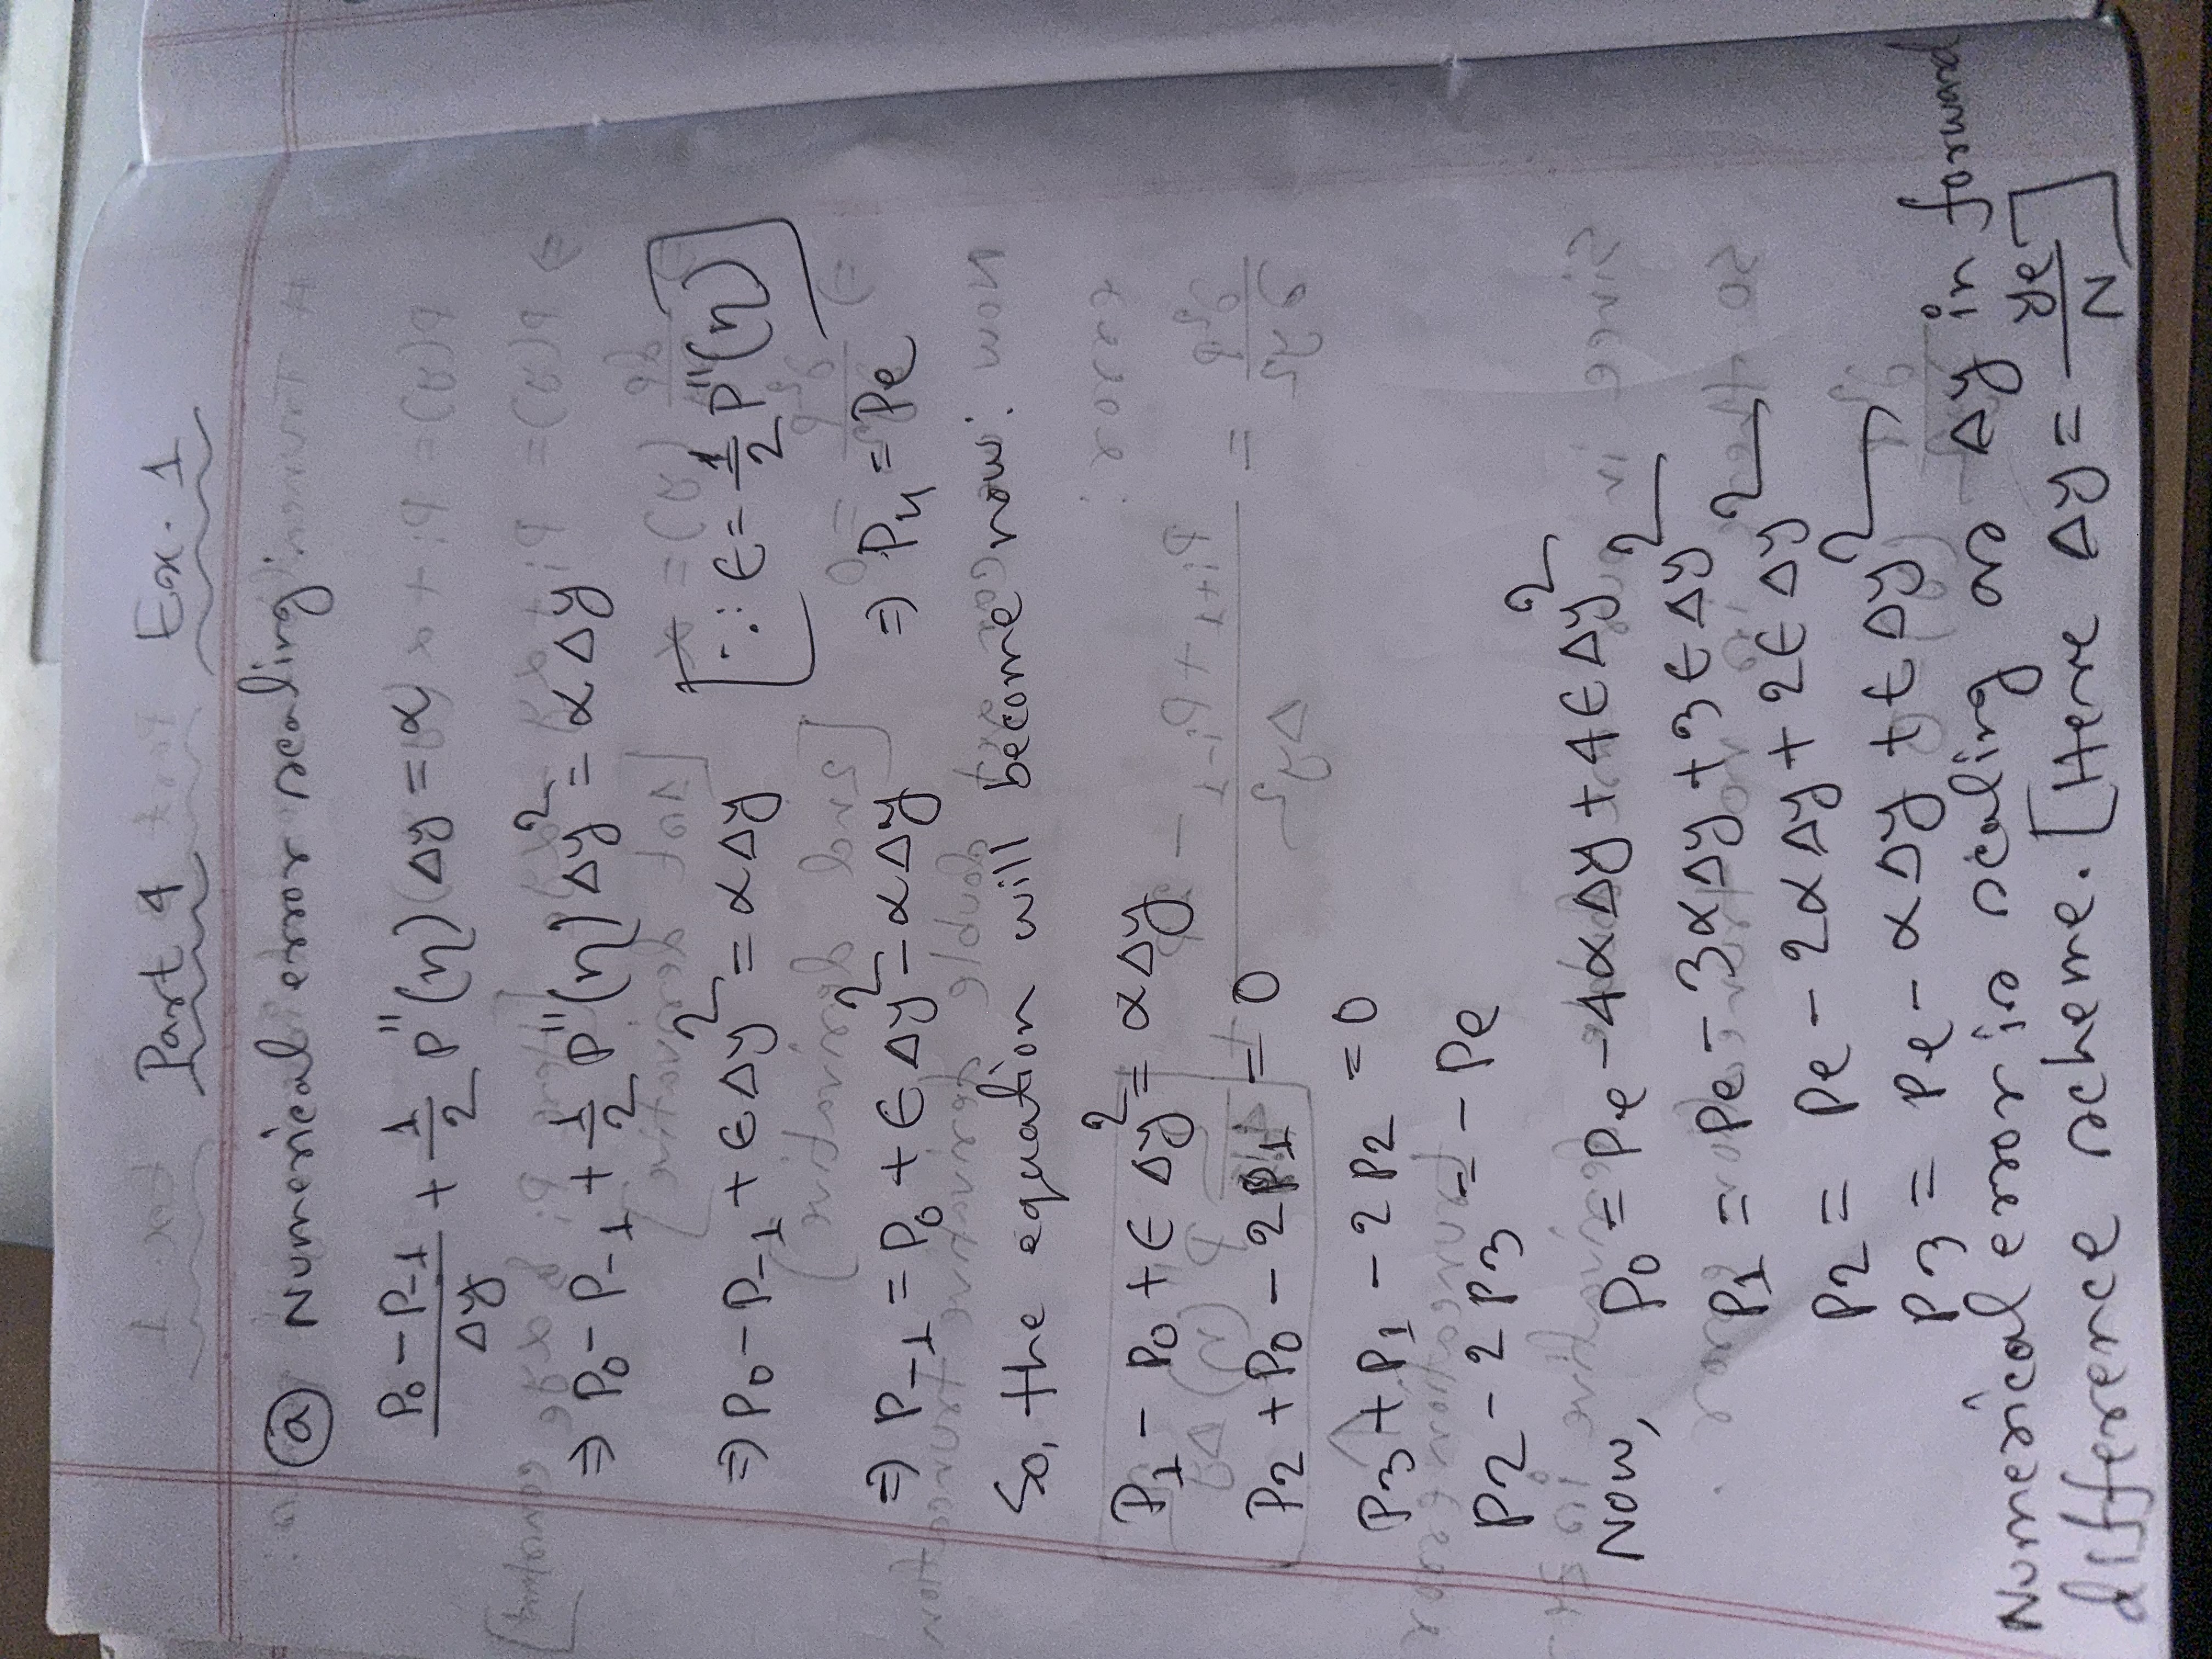 Part 4 Ex. 1
(a) Numerical error scaling:
(P₀ - P₋₁)/Δy + 1/2 P''(η) Δy = α
⇒ P₀ - P₋₁ + 1/2 P''(η) Δy² = αΔy
⇒ P₀ - P₋₁ + ϵΔy² = αΔy [∵ ϵ = 1/2 P''(η)]
⇒ P₋₁ = P₀ + ϵΔy² = αΔy ⇒ P₄ = Pe
So, the equation will become now:
P₁ - P₀ + ϵ Δy² = αΔy
P₂ + P₀ - 2P₁ = 0
P₃ + P₁ - 2P₂ = 0
P₂ - 2P₃ = - Pe
Now, P₀ = Pe - 4αΔy + 4ϵΔy²
P₁ = Pe - 3αΔy + 3ϵΔy²
P₂ = Pe - 2αΔy + 2ϵΔy²
P₃ = Pe - αΔy + ϵΔy²
Numerical error is scaling as Δy in forward
difference scheme. [Here Δy = ye/N]